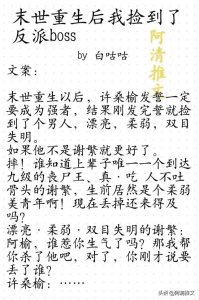 末世重生后我捡到了
反派boss
by 白咕咕
阿清推文
文案：
末世重生以后，许桑榆发誓一定
要成为强者，结果刚发完誓就捡
到了个男人，漂亮，柔弱，双目
失明。
如果他不是谢繁就更好了。
摔！谁知道上辈子唯一一个到达
九级的丧尸王，真·吃 人不吐
骨头的谢繁，生前居然是个柔弱
美青年啊！现在丢掉还来得及
吗？
漂亮·柔弱·双目失明的谢繁：
阿榆，谁惹你生气了吗？那我帮
你杀了他吧，对了，你刚才说要
丢了谁？
许桑榆：……